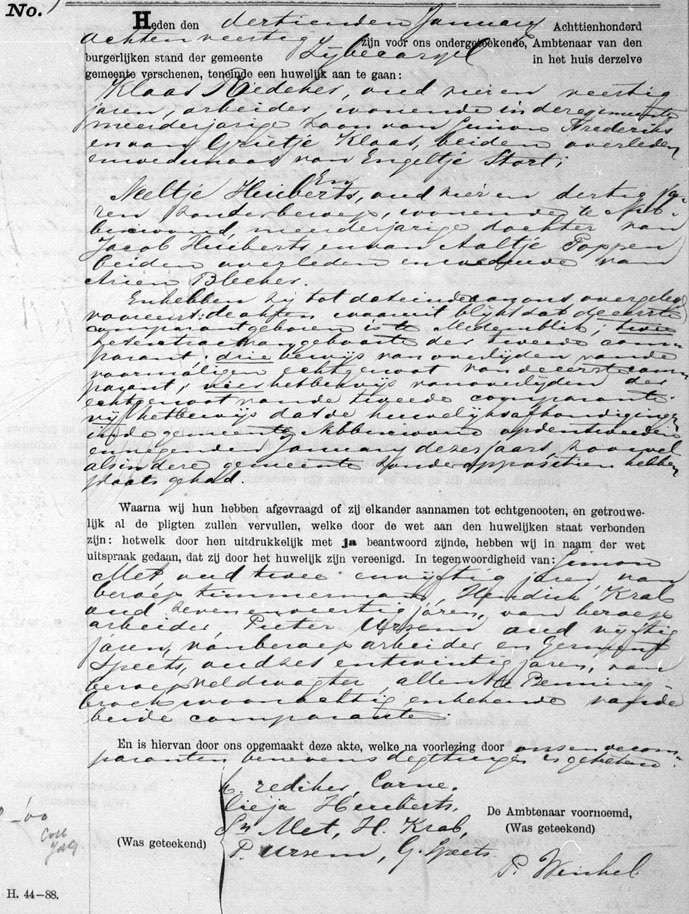 No.
Heden den dertienden January Achttienhonderd
achtenveertig zijn voor ons ondergeteekende, Ambtenaar van den
burgerlijken stand der gemeente in het huis derzelve
gemeente verschenen, teneinde een huwelijk aan te gaan:
Klaas oud vier en veertig
jaren, arbeider, wonende in deze gemeente
meerderjarige zoon van Simon Frederiks
en van Grietje Klaas, beiden overleden
en weduwnaar van Engeltje Stort;
En
Neeltje Huiberts, oud vier en dertig ja-
ren zonder beroep, wonende te Ab-
bewoud, meerderjarige dochter van
Jacob Huiberts, en van Aaltje Poppen
beiden overleden en weduwe van
Arien Bleeker.
En hebben zij tot dat einde aan ons overgeleg
comparant geboren is te Medemblik; twee
het extract van geboorte der tweede com-
parant; drie bewijs van overlijden van de
voormalige echtgenoot van de eerste com-
parant; vier het bewijs van overlijden der
echtgenoot van de tweede comparante
vijf het bewijs dat de huwelijksafkondiging
in de gemeente op den tweeden
en negenden January dezes jaars, zoowel
als in deze gemeente zonder opposition hebben
plaats gehad.
Waarna wij hun hebben afgevraagd of zij elkander aannamen tot echtgenooten, en getrouwe-
lijk al de pligten zullen vervullen, welke door de wet aan den huwelijken staat verbonden
zijn: hetwelk door hen uitdrukkelijk met ja beantwoord zijnde, hebben wij in naam der wet
uitspraak gedaan, dat zij door het huwelijk zijn vereenigd. In tegenwoordigheid van: Simon
Met oud twee en vijftig jaren, van
beroep timmerman, Hendrik Krab
oud zeven en veertig jaren, van beroep
arbeider, Pieter Ursem oud vijftig
jaren, van beroep arbeider en Gerrit
Speets, oud zes en twintig jaren, van
beroep veldwagter, allen te Benning-
broek woonachtig en bekende van de
beide comparanten.
En is hiervan door ons opgemaakt deze akte, welke na voorlezing door ons en de com-
paranten benevens de getuigen is geteekend.
K. rediker, Corne.
Huiberts,
Sn Met, H. Krab,
P. Ursem, G. Speets.
(Was geteekend)
De Ambtenaar voornoemd,
(Was geteekend)
P. Weichel.
H. 44–88.